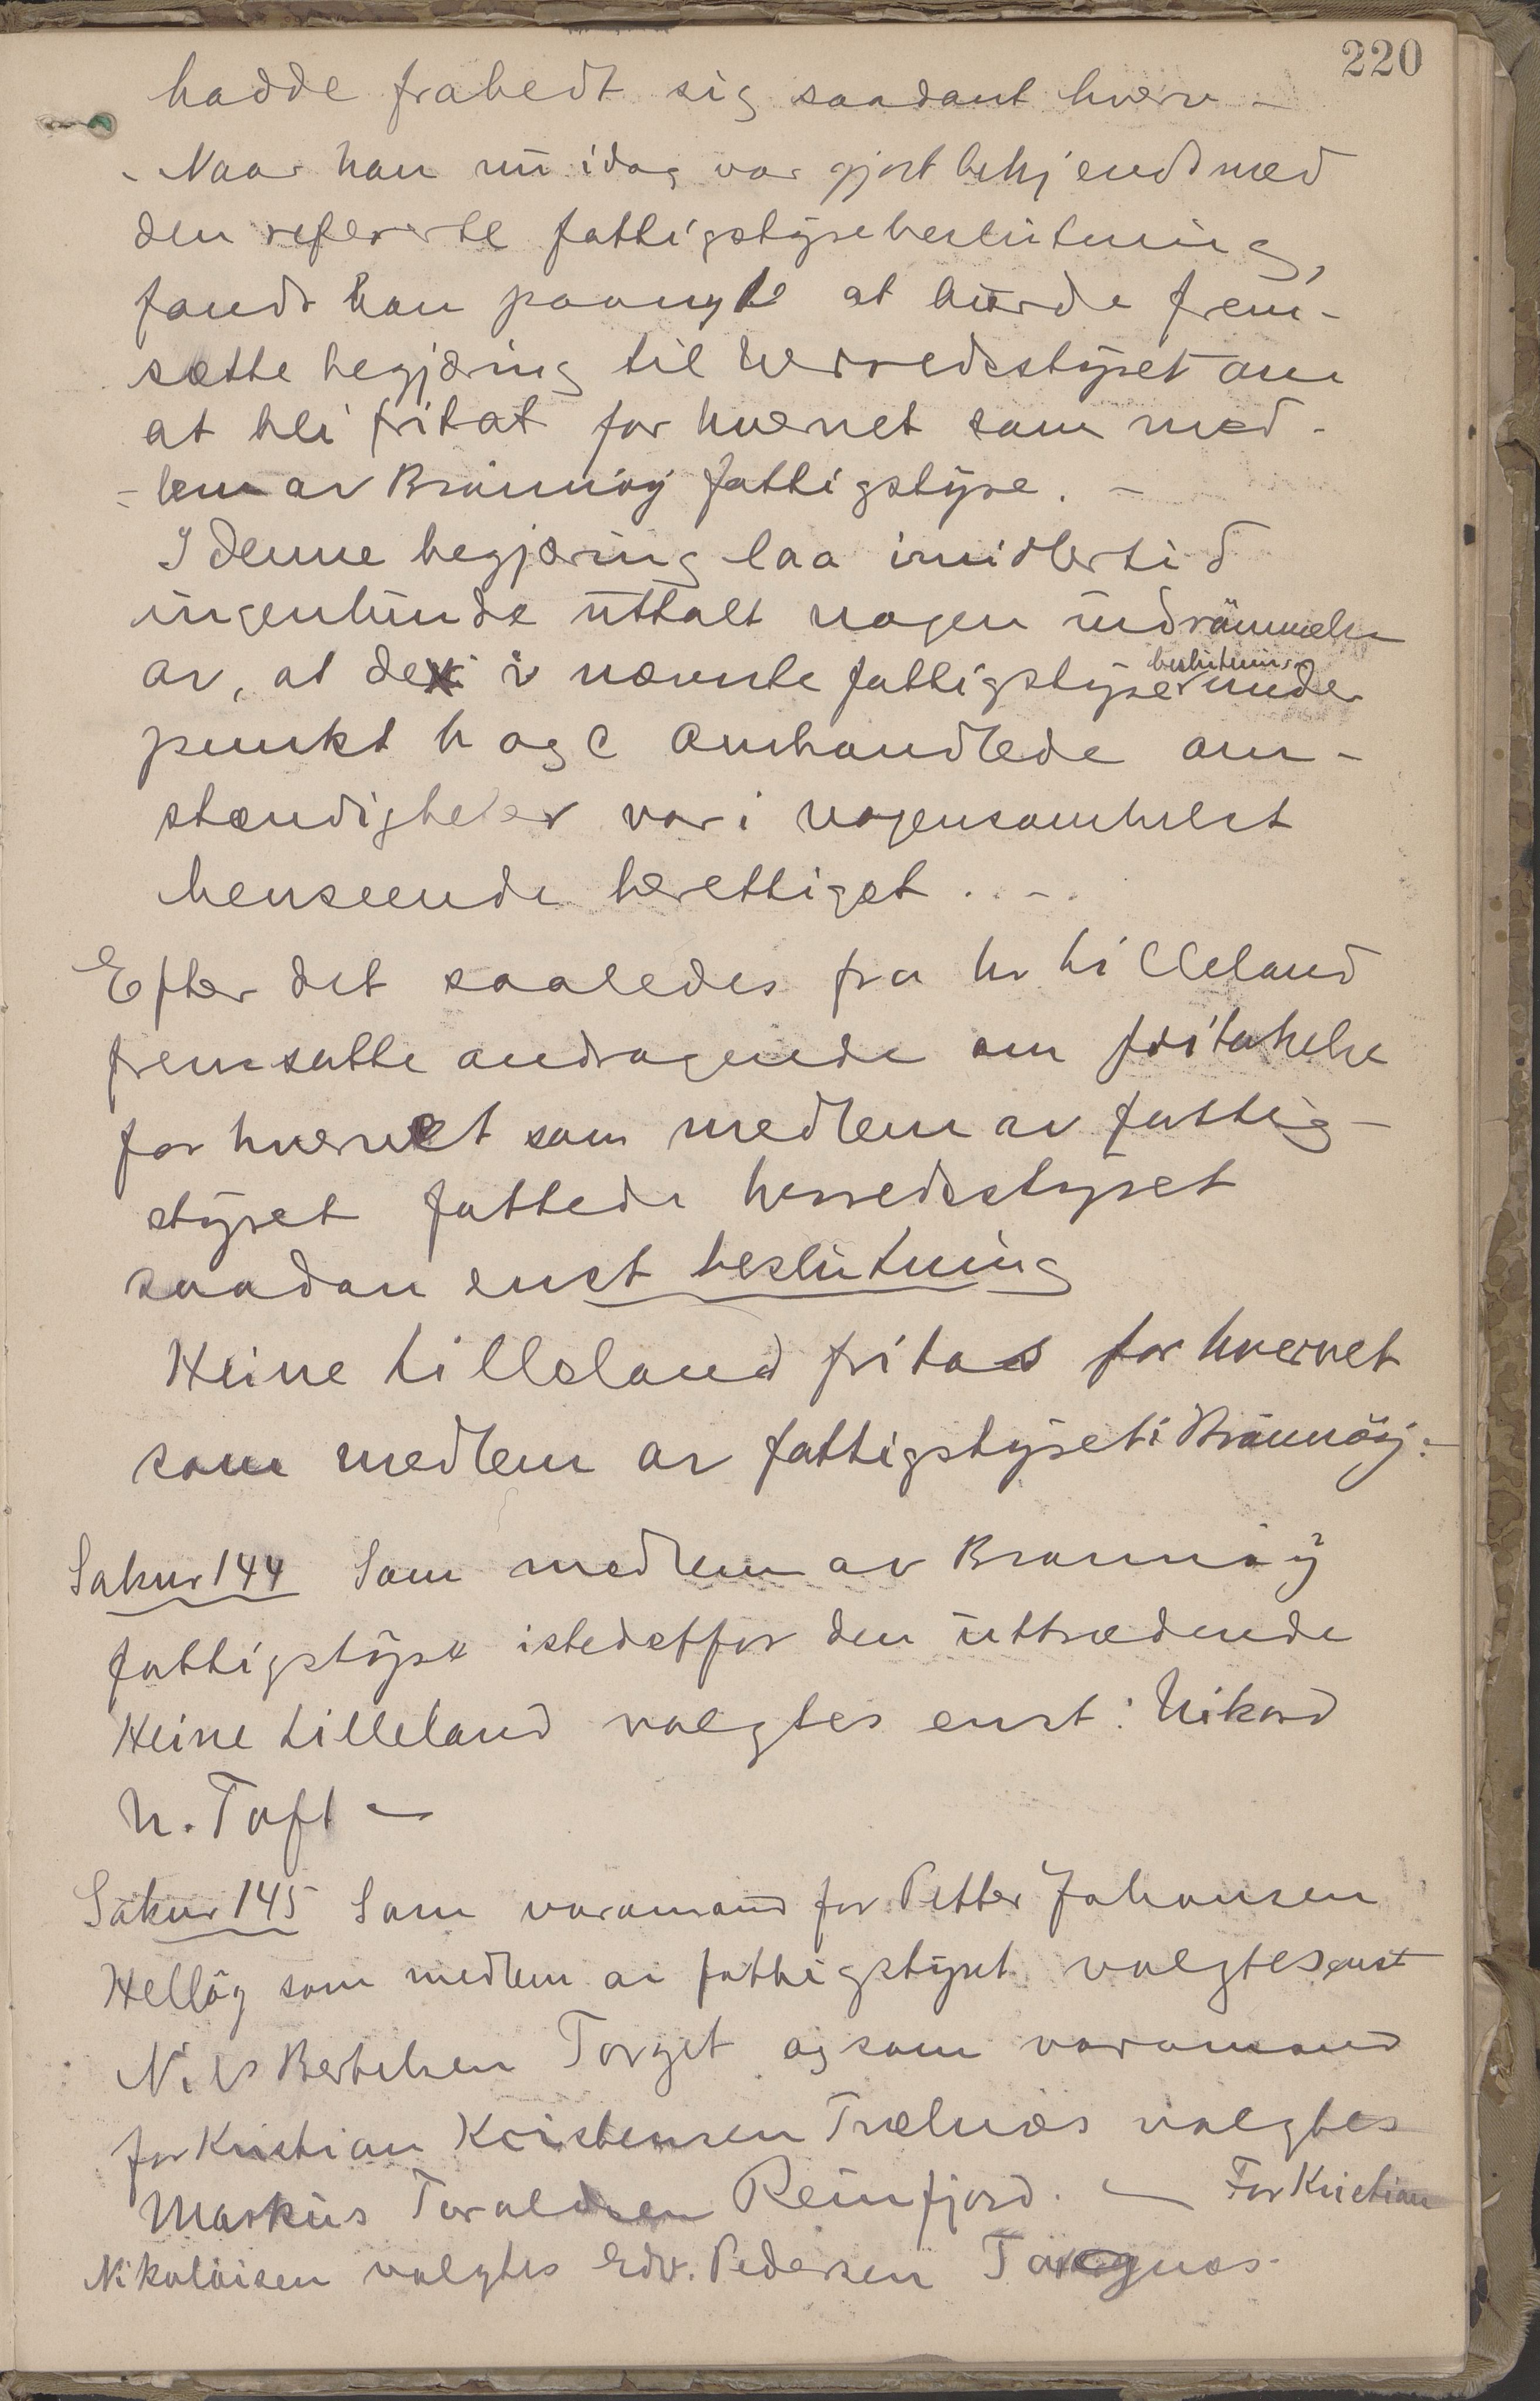 220
hadde frabedt sig saadant hverv -
- Naar han nu idag var gjort bekjendt med
den refererte fattigstyrebeslutning,
fandt han paanyt at burde frem-
sætte begjæring til herredsstyret om
at bli fritat for hvervet som med-
- lem av Brønnøy fattigstyre. -
I denne begjæring laa imidlertid
ingenlunde uttalt nogen indrømmelse
av, at de i nævnte fattigstyrebeslutning under
punkt b og c omhandlede om-
stændigheter var i nogensomhelst
henseende berettiget. . -
Efter det saaledes fra hr Lilleland
fremsatte andragende om fritakelse
for hvervet som medlem av fattig-
styret fattede herredsstyret
saadan enst beslutning
Heine Lilleland fritas for hvervet
som medlem av fattigstyret i Brønnøy. -
Saknr 144 Som medlem av Brønnøy
fattigstyre istedetfor den uttrædende
Heine Lilleland valgtes enst: Nikard
N. Toft -
Saknr 145 Som varamand for Petter Johansen
Helløy som medlem av fattigstyret valgtes enst
Nils Bertelsen Torget og som varamand
for Kristian Kristensen Trælnæs valgtes
Markus Toraldsen Reinfjord. - For Kristian
Nikolaisen valgtes Edv. Pedersen